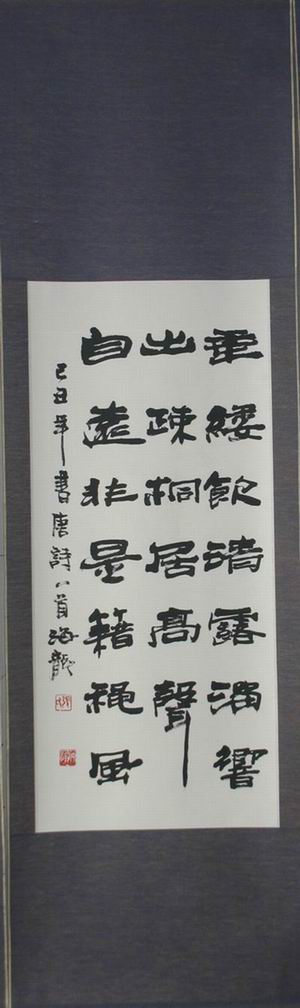 垂緌飲清露流響
出疎桐居高聲
自遠非是籍穐風
己丑年書唐詩一首海龍